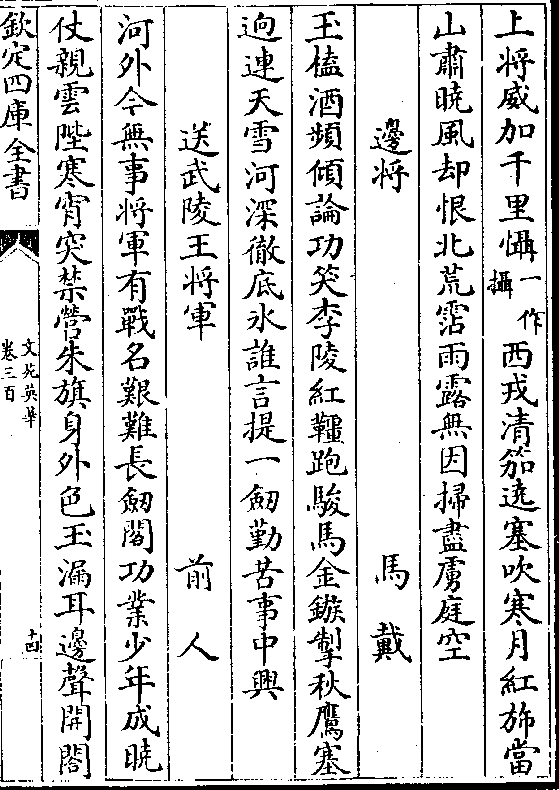 上將威加千里懾一作攝西戎清笳遶塞吹寒月紅斾當
山肅曉風却恨北荒霑雨露無因掃盡虜庭空
邊將 馬戴
玉榼酒頻傾論功笑李陵紅韁跑駿馬金鏃掣秋鷹塞
逈連天雪河深徹底氷誰言提一劒勤苦事中興
送武陵王將軍 前人
河外今無事將軍有戰名艱難長劒閣功業少年成曉
仗親雲陛寒宵突禁營朱旗身外色玉漏耳邊聲開閤
欽定四庫全書
文苑英華
卷三百
十四